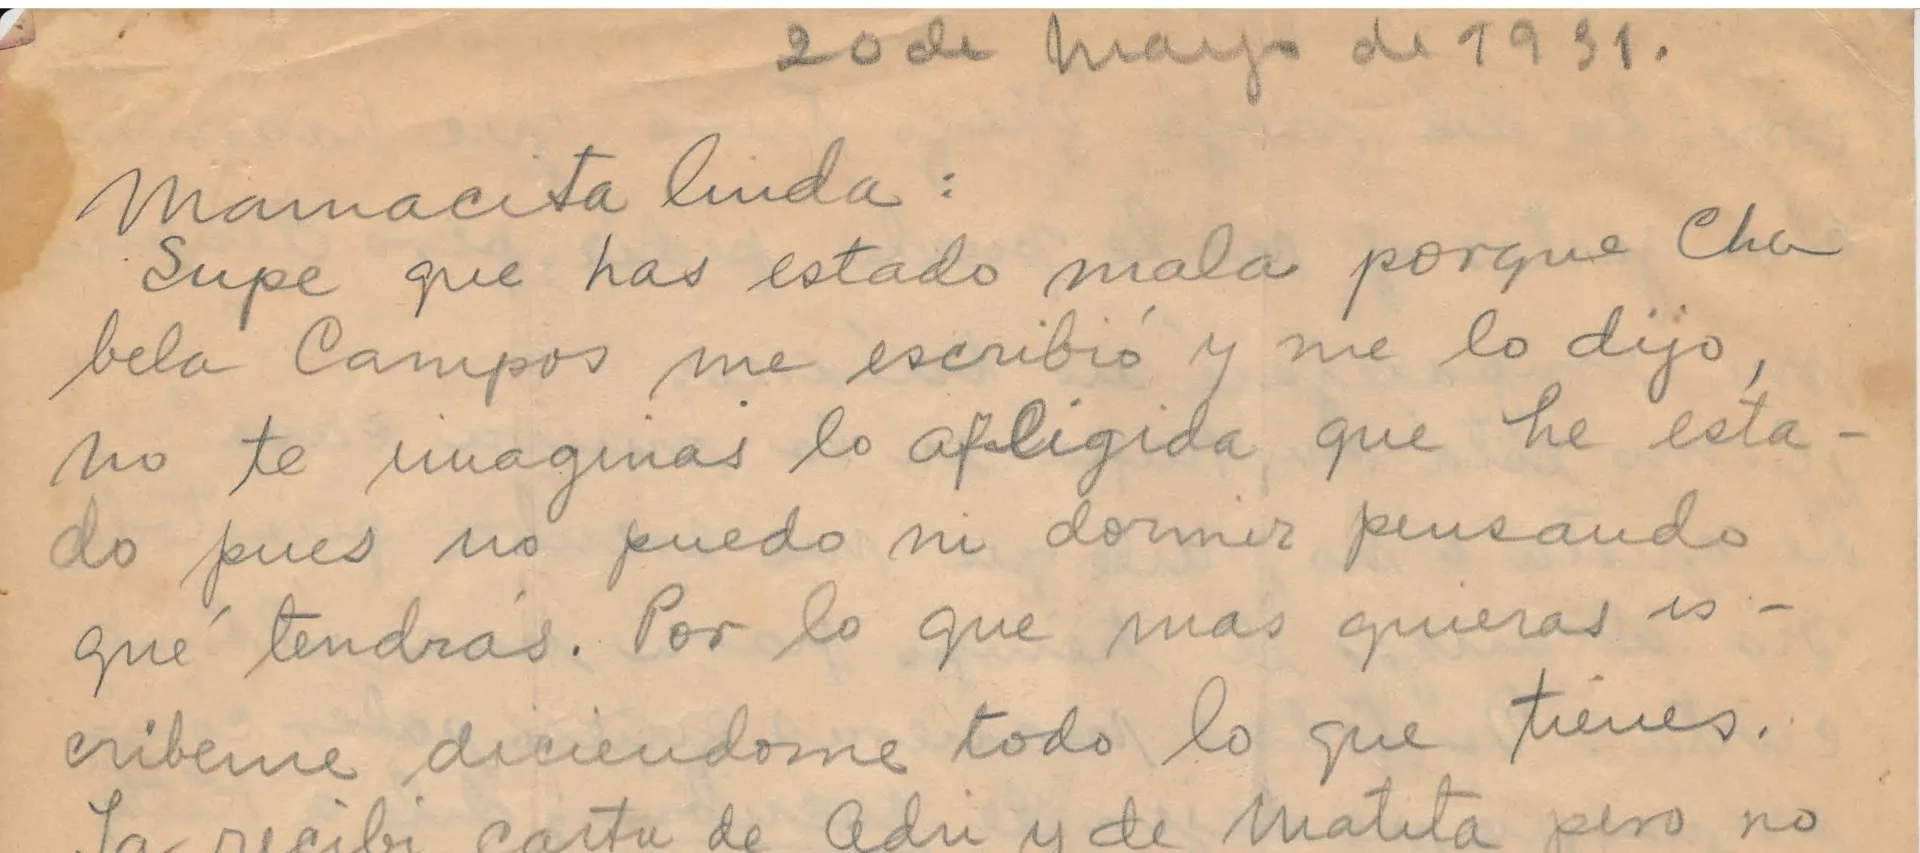 20 de Mayo de 1931.
Mamacita linda :
Supe que has estado mala porque Cha
bela Campos me escribió y me lo dijo,
no te imaginas lo afligida que he esta-
do pues no puedo ni dormir pensando
qué tendrás. Por lo que mas quieras es-
cribeme diciendome todo lo que tienes.
Ya recibi carta de Adri y de Matita pero no